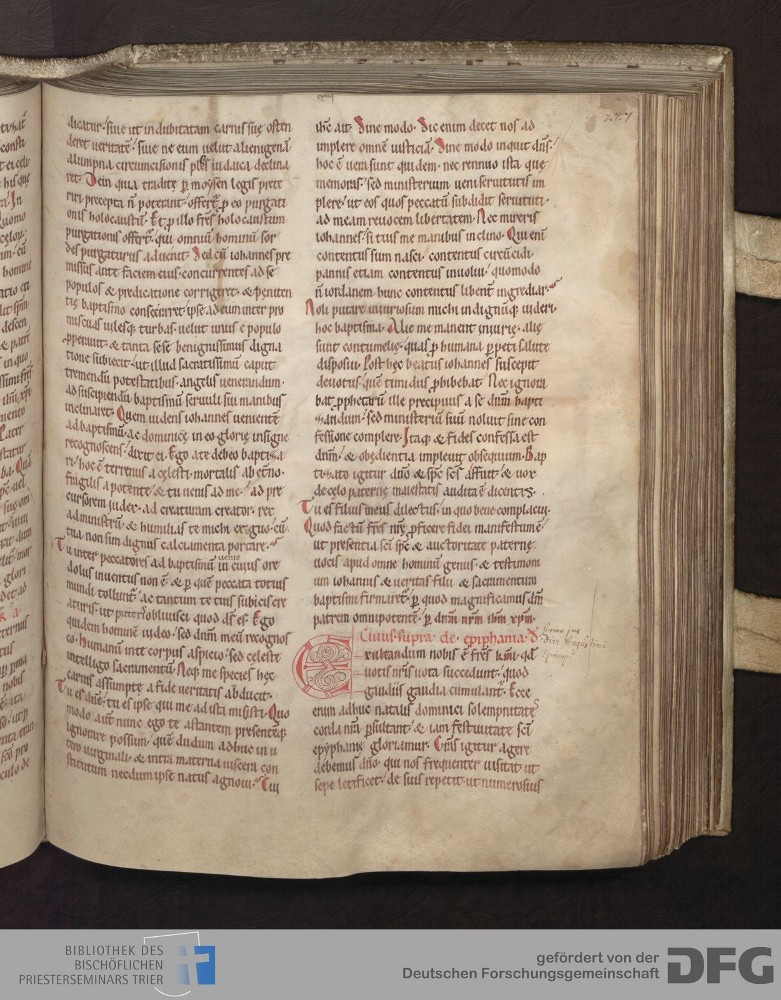 dicatur. siue ut indubitatam carnis sue osten
deret ueritatē. siue ne eum uelut alienigenā
alumpna circumcisionis plebs iudaica declina
ret. Dein quia tradite p moysen legis prete
riri precepta ñ poterant. offert p eo purgati
onis holocaustū. Et p illo frēs holocaustum
purgationis offert. qui omniū hominū sor
des purgaturus aduenit. Sed cū iohannes pre
missus ante faciem eius. concurrentes ad se
populos & predicatione corrigeret. & peniten
tie baptismo consecraret. ipse ad eum inter pro
miscuas uilesq turbas. uelut unus e populo
pperauit. & tanta sese benignissimus digna
tione subiecit. ut illud sacratissimū caput
tremendū potestatibus. angelis uenerandum.
ad suscipiendū baptismū seruuli sui manibus
inclinaret. Quem uidens iohannes uenientē
ad baptismū. ac dominice in eo glorie insigne
recognoscens. dicit ei. Ego a te debeo baptiza
ri. hoc ē terrenus a celesti. mortalis ab etno.
fragilis a potente. & tu uenis ad me. ad pre
cursorem iudex. ad creaturam creator. rex
ad ministrū. & humilias te michi ergo cū.
tua non sim dignus calciamenta portare.
Tu inter peccatores ad baptismū uenis in cuius ore
dolus inuentus non ē. & p quē peccata totius
mundi tolluntur. ac tantum te tuis subicis cre
aturis. ut pateris obliuisci quod ds es. Ego
quidem hominē uideo. sed dnm meū recognos
co. Humanū inter corpus aspicio. sed celeste
intelligo sacramentū. Neq me species hec
carnis assumpte a fide ueritatis abducit.
Tu es dne. tu es ipse qui me ad ista misisti. Quo
modo aut nunc ego te astantem presenteq
ignorare possum. quē dudum adhuc in u
tero uirginali. & intra materna uiscera con
stitutum necdum ipse natus agnoui. Cui
227
ihc ait. Sine modo. Sic enim decet nos ad
implere omnē iusticiā. Sine modo inquit dns.
hoc ē uera sunt quidem. nec rennuo ista que
memoras. sed ministerium ueni seruitutis im
plere. ut eos quos peccatū subdidit seruituti.
ad meam reuocem libertatem. Nec mireris
iohannes. si tuis me manibus inclino. Qui enī
contentus sum nasci. contentus circūcidi.
pannis etiam contentus inuolui. quomodo
ñ iordanem hunc contentus libent ingrediar.
Noli putare iniuriosum michi indignūq uideri
hoc baptisma. Alie me manent iniurie. alie
sunt contumelie. quas p humana ppeti salute
disposui. Post hec beatus iohannes suscepit
deuotus. quē timidus phibebat. Nec ignora
bat ppheta ille precipuus a se dnm bapti
zandum. sed ministeriū suū noluit sine con
fessione complere. Itaq & fides confessa est
dnm. & obedientia impleuit obsequium. Bap
tizato igitur dno & spc scs affuit. & uox
de celo paterne maiestatis audita ē dicentis.
Tu es filius meus dilectus. in quo bene complacui.
Quod factū frēs nre pficere fidei manifestum ē.
ut presentia sci spc & auctoritate paterne
uocis apud omne hominū genus. & testimoni
um iohannis. & ueritas filii. & sacramentum
baptismi firmaret. p quod magnificamus dm
patrem omnipotentē. p dnm nrm ihm xpm.
Cuius supra. de epiphania. D
Exultandum nobis ē frēs kmi. qd
uotis nris uota succedunt. quod
gaudiis gaudia cumulantur. Ecce
enim adhuc natalis dominici solempnitate
corda nra psultant. & iam festiuitate sci
epyphanie gloriamur. Gras igitur agere
debemus dno. qui nos frequenter uisitat. ut
sepe letificet. de suis repetit. ut numerosius
BIBLIOTHEK DES
BISCHÖFLICHEN
PRIESTERSEMINARS TRIER
gefördert von der
Deutschen Forschungsgemeinschaft
DFG